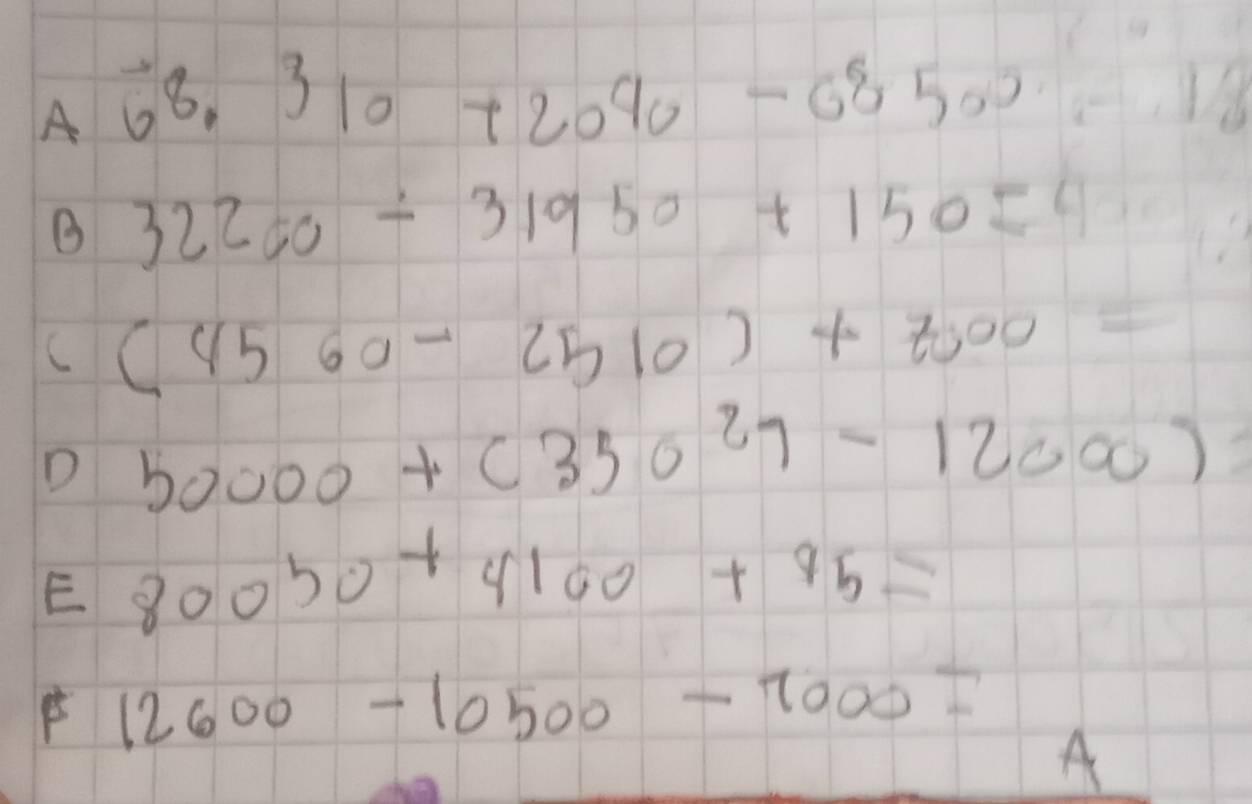 A 68. 310 + 2090 - 68500
B 32200 ÷ 31950 + 150 = 400
C (4560 - 2510) + 7000 =
D 50000 + (35027 - 12000) =
E 80050 + 4100 + 95 =
F 12600 - 10500 - 2000 =
A